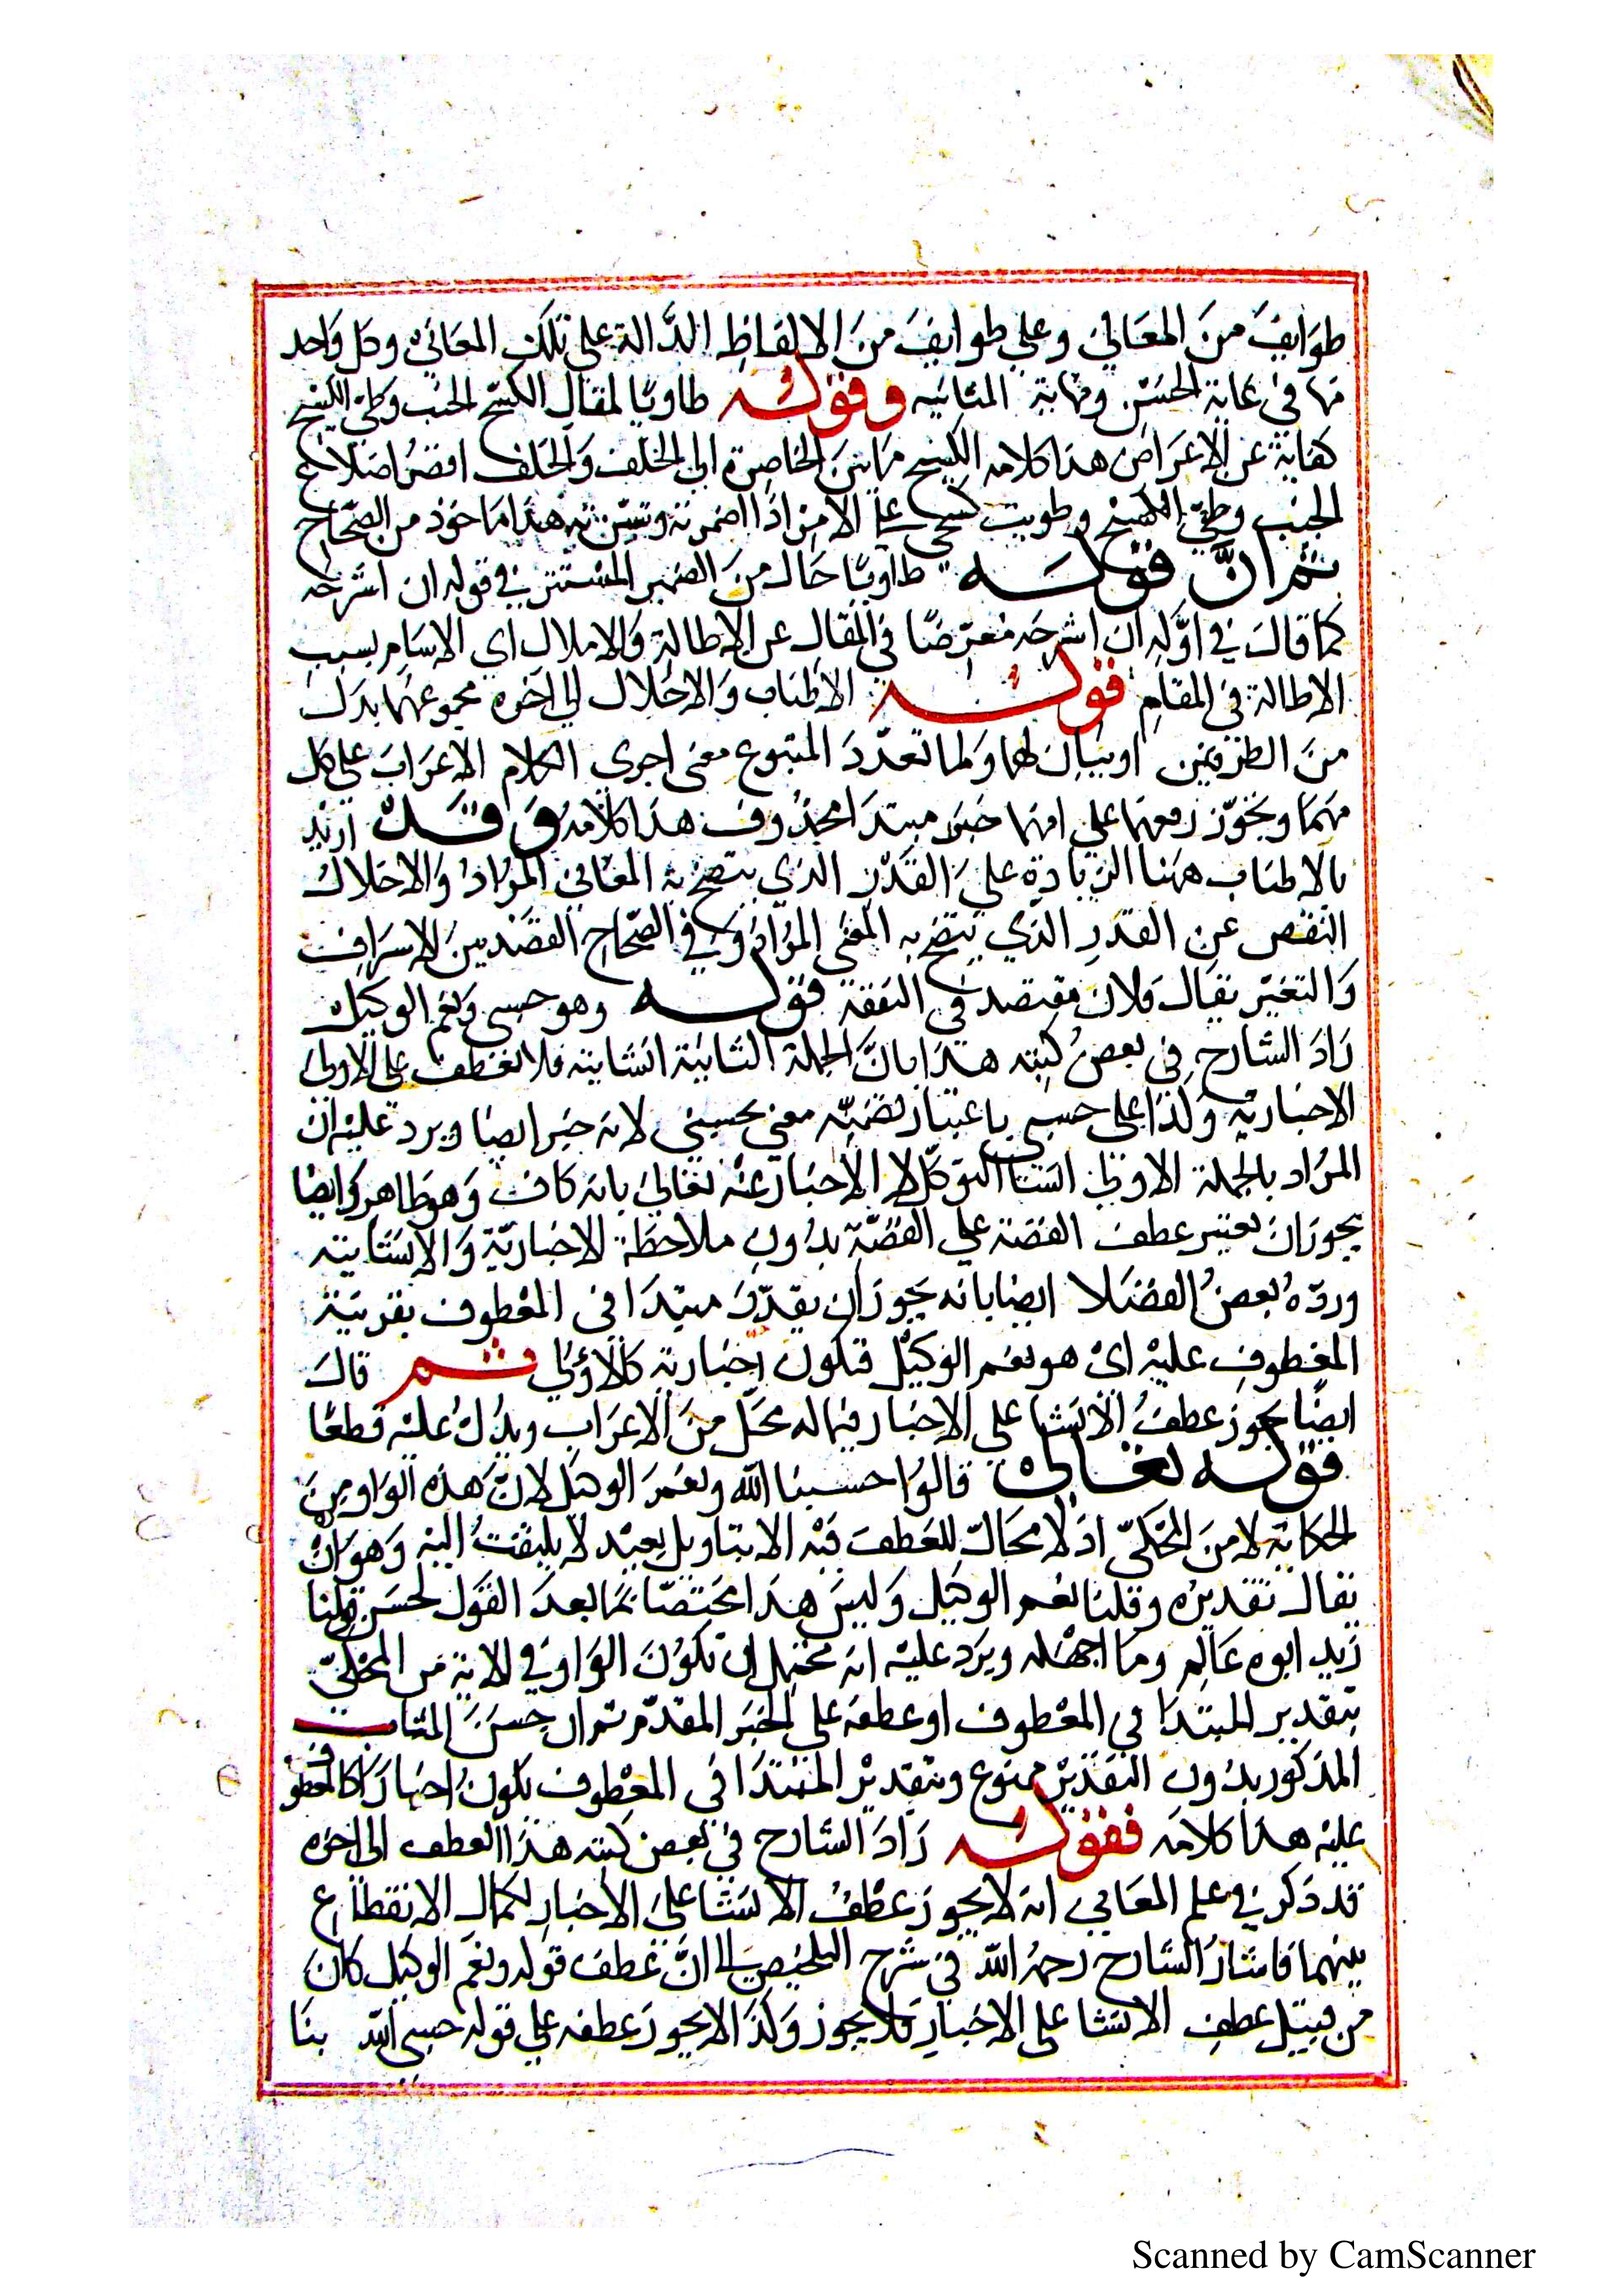 طوَايفَ منَ المعَاني وعلي طوايفَ منَ الالفاظِ الدَّالة على تلكَ المعَاني وكل وَاحد
منها في غاية الحسْن ونهاية المتانيه وقوله طاويًا لمقال الكشح الجنب وطيّ الكشح
كفاية عن الاعرَاض هذا كلامه الكشح مَا بينَ الخاصِرة الي الخلف وَالخلف اقصَرُ اضلاع
الجنب وطيّ الكشح وطويت كشحي على الامر اذا اضمرته وسترته هذا ماخوذ من الصّحاح
ثم انَّ قوله طاويًا حَال منَ الضمير المسْتتر في قوله ان اشرحَه
كما قالَ في اوَّله ان اشرحَه مُعرضًا في المقال عن الاطالة وَالاملال اي الاسَام بسببِ
الاطالة في المقام قوله الاطناب وَالاخلال الي اخره مجموعهما بدَل
منَ الطرفين اوبيَان لهما وَلما تعدّدَ المتبوع معنى اجري الكلام الاعرَابَ على كل
منهمَا ويجَوّز رفعهما على انهما خبَر مبتدَا محذوف هذا كلامه وَ قَدْ اريْد
بالاطناب ههنا الزيادة علىَ القَدْر الذي يتضح به المعَاني المرَادُ وَالاخلالُ
النقص عن القدرِ الذي يتضح به المعَنى المرَاد وَفي الصّحاح القصْد بينَ الاسرَاف
وَالتغيّر يقال فلان مقتصد في النفقة قوله وهو حسبي ونعم الوكيل
زادَ الشارح في بعض كتبه هذا بانَّ الجملة الثانيَة انشايّة فلا تعطف على الاولى
الاخباريّة وَلذَا على حسبي باعتبار تضمّنه معنى يحسبني لانه خبر ايضا ويرد عليْه ان
المرَاد بالجملة الاولي انشا التوكّل لا الاخبار عنْه تعَالي بانه كاف وَهو ظاهر وَايضا
يجوز ان يعتبر عطف القصّة على القصّة بدون ملاحظة الاخباريّة وَالانشائية
وردّه بعضُ الفضَلا ايضا بانه يجوز ان يقدّرَ مبتدَا في المعْطوف بقرينة
المعْطوفِ عليْه ايْ هو نعم الوَكيْل فتكون اخبَارية كالاوْلي ثم قالَ
ايضًا يجوز عطفُ الانشا على الاخبَار فيما له محَلّ منَ الاعرَاب ويدُلُ عليْه قطعًا
قوله تعالى قالوُا حسبنا الله ونعْمَ الوكيل لانَّ هَذه الوَاو مِنَ
الحكاية لا منَ المحكيّ اذ لا محَالّ للعَطف فيه الا بتاويل بعيْد لا يلتفتُ اليه وَهو انْ
يقال تقديرُه وقلنا نعم الوكيل وَليسَ هذا مختصّا بمَا بعدَ القوَل لحسَن قولنا
زَيد ابوه عَالم ومَا اجهَله ويرَد عليْه انه محتمل ان تكوُنَ الوَاو في الاية من المحكيّ
بتقدير المبتدَا في المعْطوف او عطفه على الخبَر المقدّم ثم ان حسنَ المثاب
المذكور بدُون التقديْر ممنوع وبتقديْر المبتدَا في المعْطوف يكون اخبارَا كالمعطوف
عليه هذا كلامه فقوله زَادَ الشارح في بعض كتبه هذا العطف الى اخره
قد ذكر في علم المعَاني انه لا يجوز عطْفُ الانشا علىَ الاخبَار لكمال الانقطاع
بينهما فاشارَ الشارح رحمهُ الله في شرح التلخيص الى انَّ عطفَ قوله ونعم الوكيل كان
من قبيْل عطفِ الانشا على الاخبارِ فلا يجوز وَلذَا لا يجوز عطفه على قوله حسبي الله بنَا
Scanned by CamScanner